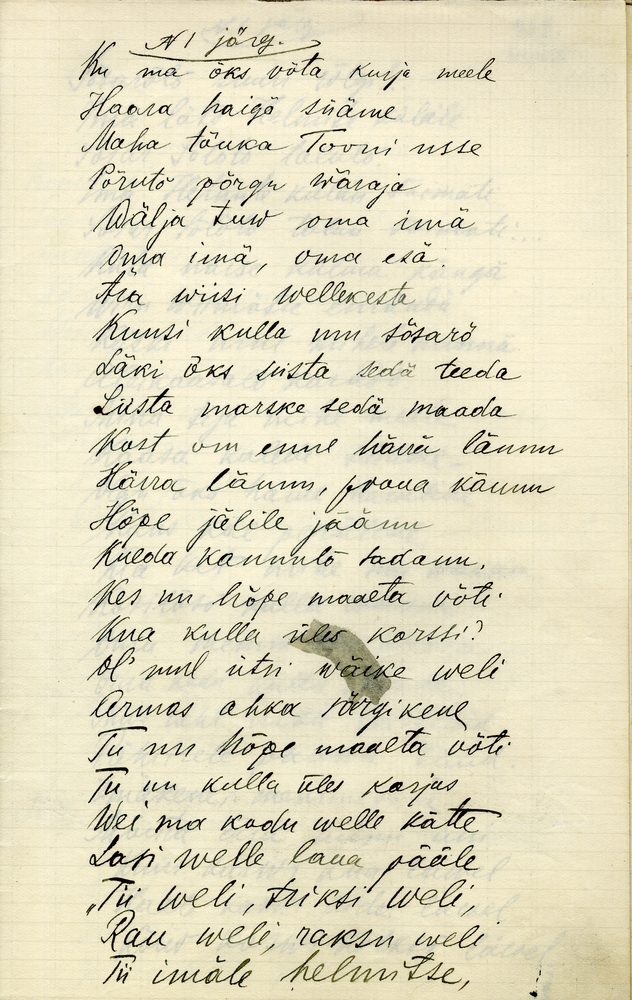 N1 järg.
Ku ma õks võta kurja meele
Haara haigõ süäme
Maha tõuka Toovri usse
Põrutõ põrgu wäraja
Wälja tuw oma imä
Oma imä, oma esä.
Ära wiisi wellekesta
Kuusi kulla mu sõsarõ
Läki õks siista sedä teeda
Liista marske sedä maada
Kost om enne härrä lännu
Härra lännu, proua käunu
Hõpe jälile jäänu
Kulda kannulõ sadanu.
Kes mu hõpe maaeta võti
Kua kulla üles korssi?
Ol' mul ütsi wäike weli
Armas ahka särgikene
Tu mu hõpe maalta võti
Tu mu kulla üles korjas
Wei ma kodu welle kätte
Lasi welle laua pääle
„Tii weli, triksi weli,
Rau weli, raksu weli
Tii imäle helmitse,